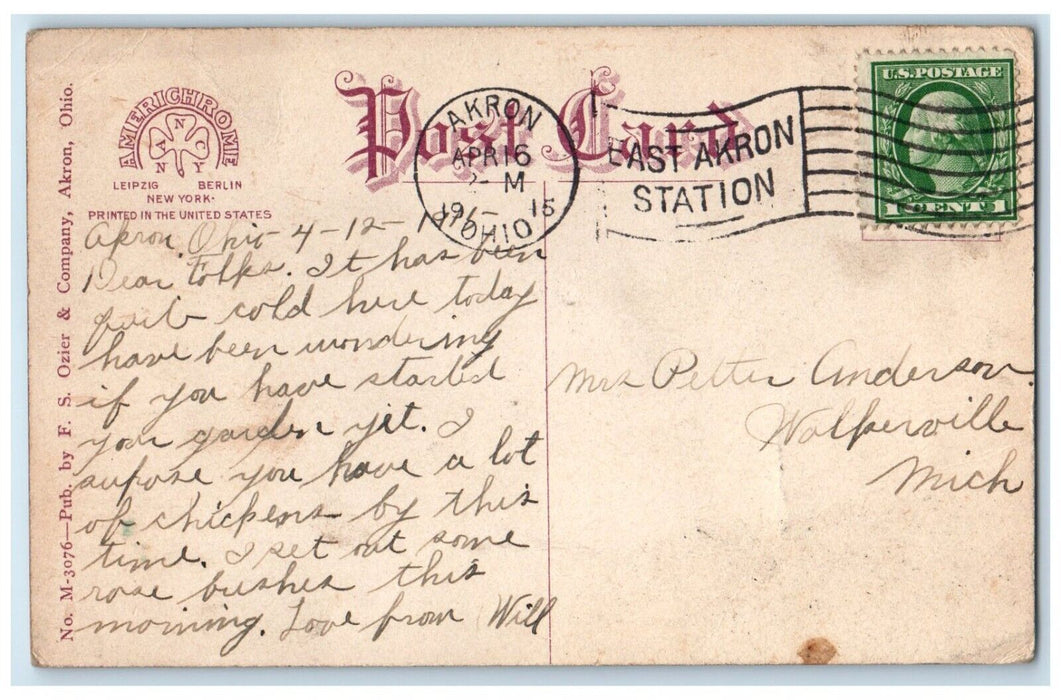 Post Card
AMERICHROME
NANCY
LEIPZIG BERLIN
NEW YORK.
PRINTED IN THE UNITED STATES
No. M-3076—Pub. by F. S. Ozier & Company, Akron, Ohio.
AKRON
APR 16
M
19 15
OHIO
EAST AKRON
STATION
U.S. POSTAGE
1 CENT 1
Akron, Ohio 4-12-
Dear Folks. It has been
quit cold here today
have been wondering
if you have started
your garden yet. I
supose you have a lot
of chickens by this
time. I set out some
rose bushes this
morning. Love from Will
Mrs Petter Anderson.
Walkerville
Mich